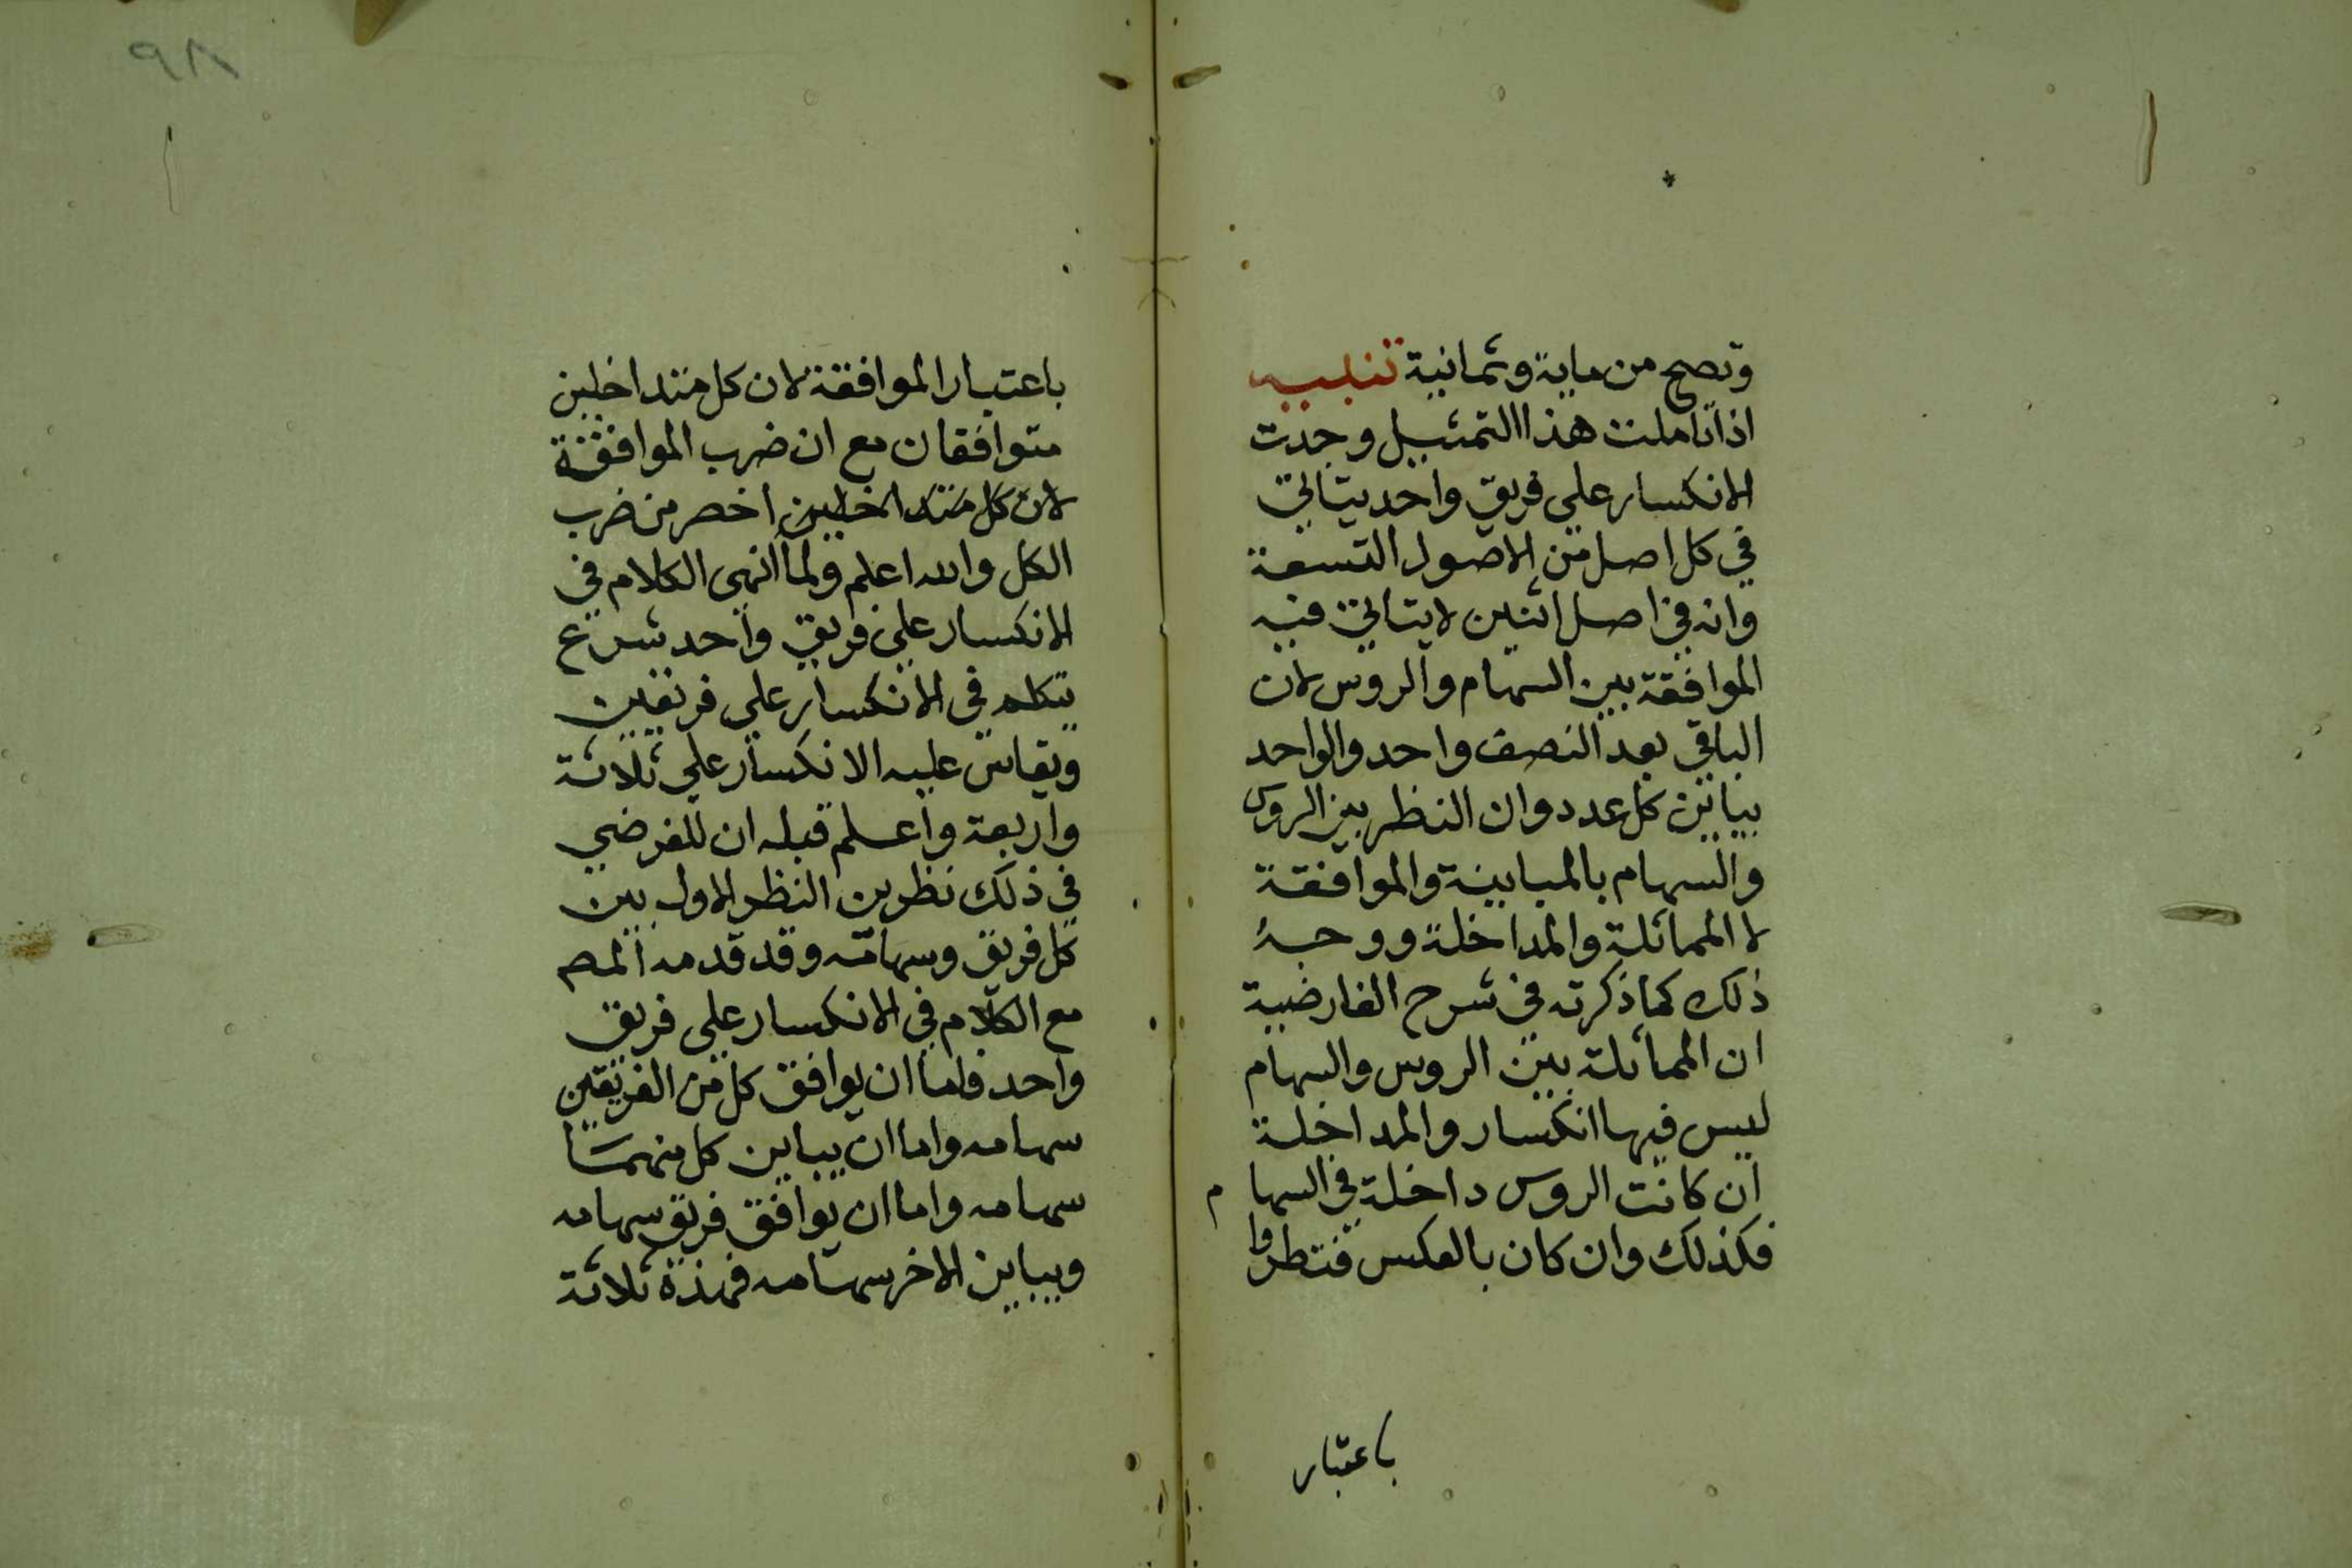 وتصح من ماية وثمانية تنبيه
اذا تاملت هذا التمثيل وجدت
الانكسار علي فريق واحد يتاتي
في كل اصل من الاصول التسعة
وانه في اصل اثنين لا يتاتي فيه
الموافقة بين السهام والروس لان
الباقي بعد النصف واحد والواحد
يباين كل عدد وان النظر بين الروس
والسهام بالمباينة والموافقة
لا المماثلة والمداخلة ووجه
ذلك كما ذكرته في شرح الفارضية
ان المماثلة بين الروس والسهام
ليس فيها انكسار والمداخلة
ان كانت الروس داخلة في السهام
فكذلك وان كان بالعكس فنظروا
باعتبار
٩٨
باعتبار الموافقة لان كل متداخلين
متوافقان مع ان ضرب الموافقة
لان كل متداخلين اخصر من ضرب
الكل والله اعلم ولما انهى الكلام في
الانكسار علي فريق واحد شرع
يتكلم في الانكسار علي فريقين
ويقاس عليه الانكسار علي ثلاثة
واربعة واعلم قبله ان للفرضي
في ذلك نظرين النظر الاول بين
كل فريق وسهامه وقد قدمه المص
مع الكلام في الانكسار علي فريق
واحد فاما ان يوافق كل من الفريقين
سهامه واما ان يباين كل منهما
سهامه واما ان يوافق فريق سهامه
ويباين الاخر سهامه فهذه ثلاثة